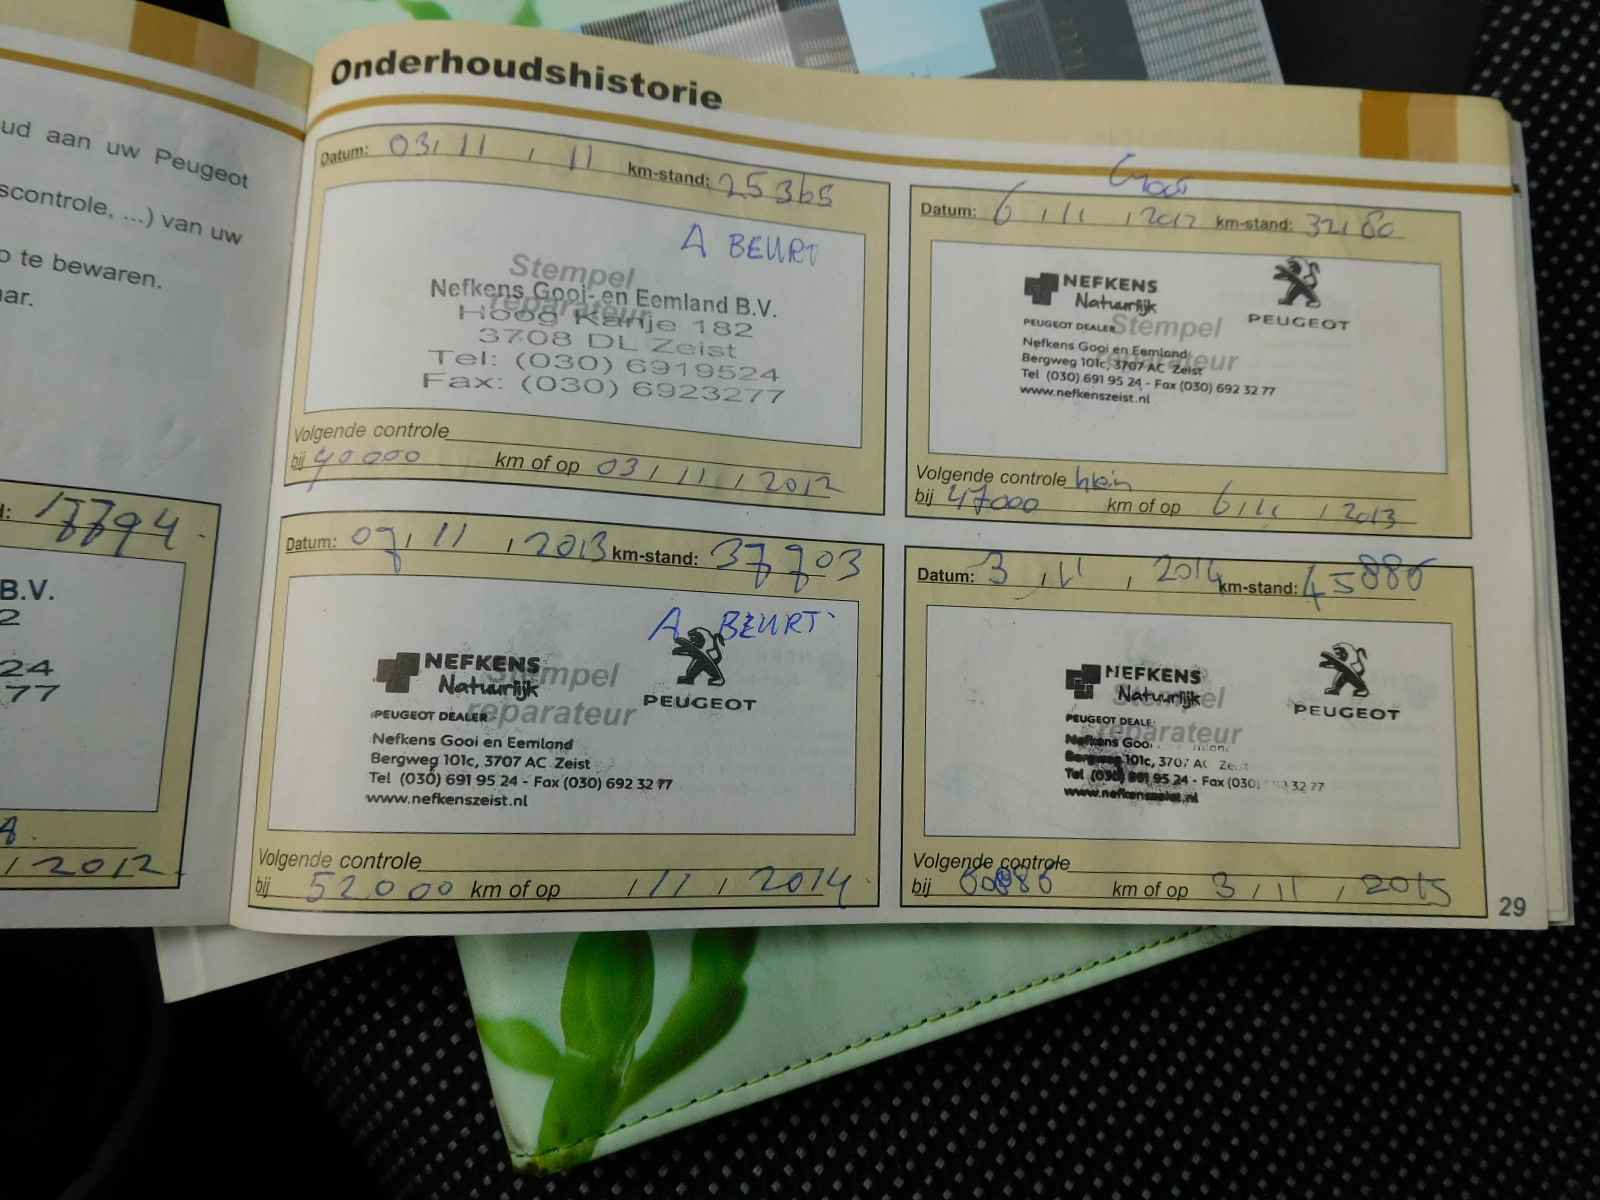 ud aan uw Peugeot
scontrole, ...) van uw
o te bewaren.
ar.
d: 17794
B.V.
2
24
77
/ 2012
Onderhoudshistorie
Datum: 03, 11 , 11 km-stand: 25365
A BEURT
Stempel
reparateur
Nefkens Gooi- en Eemland B.V.
Hoog Kanje 182
3708 DL Zeist
Tel: (030) 6919524
Fax: (030) 6923277
Volgende controle
bij 40000 km of op 03, 11, 2012
Groot
Datum: 6 , 11 , 2012 km-stand: 32180
NEFKENS
Natuurlijk
PEUGEOT
PEUGEOT DEALER
Stempel
reparateur
Nefkens Gooi en Eemland
Bergweg 101c, 3707 AC Zeist
Tel (030) 691 95 24 - Fax (030) 692 32 77
www.nefkenszeist.nl
Volgende controle klein
bij 47000 km of op 6, 11 , 2013
Datum: 07, 11 , 2013 km-stand: 37703
A BEURT
NEFKENS
Natuurlijk
PEUGEOT
PEUGEOT DEALER
Stempel
reparateur
Nefkens Gooi en Eemland
Bergweg 101c, 3707 AC Zeist
Tel (030) 691 95 24 - Fax (030) 692 32 77
www.nefkenszeist.nl
Volgende controle
bij 52000 km of op , 11 , 2014
Datum: 3 , 11 , 2014 km-stand: 45886
NEFKENS
Natuurlijk
PEUGEOT
PEUGEOT DEALE
Stempel
reparateur
Nefkens Gooi
Bergweg 101c, 3707 AC Zeist
Tel (030) 691 95 24 - Fax (030) 32 77
www.nefkenszeist.nl
Volgende controle
bij 60886 km of op 3, 11 , 2015
29